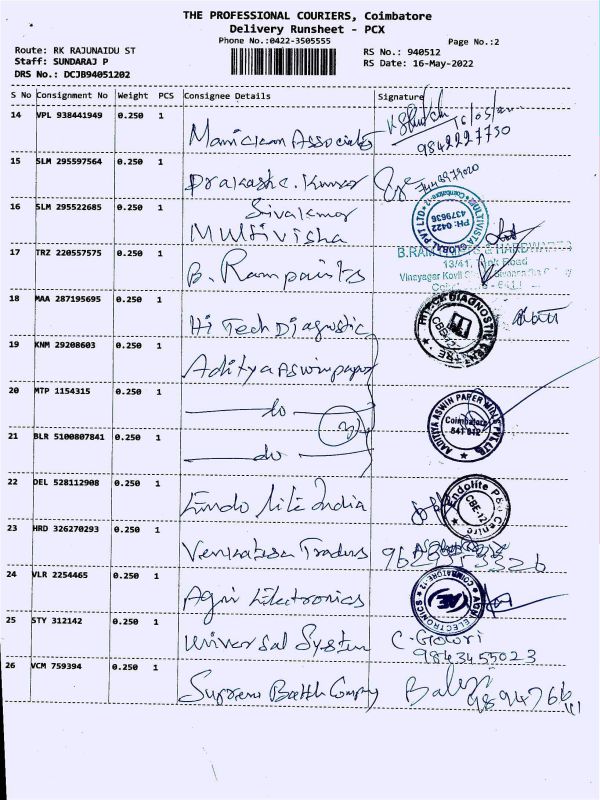 THE PROFESSIONAL COURIERS, Coimbatore
Delivery Runsheet - PCX
Phone No.:0422-3505555
Page No.:2
Route: RK RAJUNAIDU ST
RS No.: 940512
Staff: SUNDARAJ P
RS Date: 16-May-2022
DRS No.: DCJB94051202
S No Consignment No Weight PCS Consignee Details Signature
14 VPL 938441949 0.250 1
Manickam Associates
16/05/
9842227730
15 SLM 295597564 0.250 1
Prakash c. Kumar
16 SLM 295522685 0.250 1
Sivakumar
Multivisha
MULTIVISTA GLOBAL PVT LTD
PH: 0422
4379636
Coimbatore-12
17 TRZ 220557575 0.250 1
B. Ram paints
B.RAM HARDWARES
13/41, Road
Vinayagar Kovil
18 MAA 287195695 0.250 1
Hi Tech Diagnostic
HITECH DIAGNOSTIC CENTRE
CBE-12
19 KNM 29208603 0.250 1
Aditya Aswin paper
20 MTP 1154315 0.250 1
do
3
AADITYA ASWIN PAPER MILLS PVT LTD
Coimbatore
641 012
21 BLR 5100807841 0.250 1
do
22 DEL 528112908 0.250 1
Endo lite India
Endolite P&O Centre
CBE-12
23 HRD 326270293 0.250 1
Venkatesa Traders
24 VLR 2254465 0.250 1
Agni Electronics
AGNI ELECTRONICS
COIMBATORE-12
25 STY 312142 0.250 1
Universal System
C. Gowri
9843455023
26 VCM 759394 0.250 1
Supreme Batth Compny
Balaji